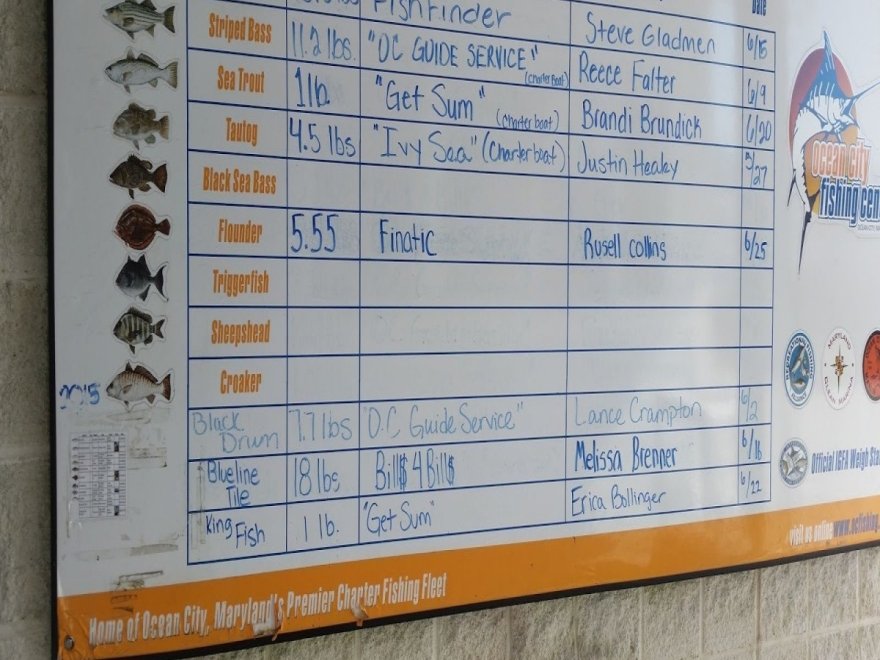 Date
Fishfinder
Striped Bass 11.2 lbs. "OC GUIDE SERVICE" (charter boat) Steve Gladmen 6/15
Sea Trout 1 lb. "Get Sum" (charter boat) Reece Falter 6/9
Tautog 4.5 lbs "Ivy Sea" (Charter boat) Brandi Brundick 6/20
Black Sea Bass Justin Healey 5/27
Flounder 5.55 Finatic Rusell collins 6/25
Triggerfish
Sheepshead
Croaker
Black Drum 7.7 lbs "O.C Guide Service" Lance Crampton 6/2
Blueline Tile 18 lbs Bill$ 4 Bill$ Melissa Brenner 6/16
King Fish 1 lb. "Get Sum" Erica Bollinger 6/22
Ocean City
fishing cen
Official IGFA Weigh Sta
visit us online www.ocfishing.
Home of Ocean City, Maryland's Premier Charter Fishing Fleet